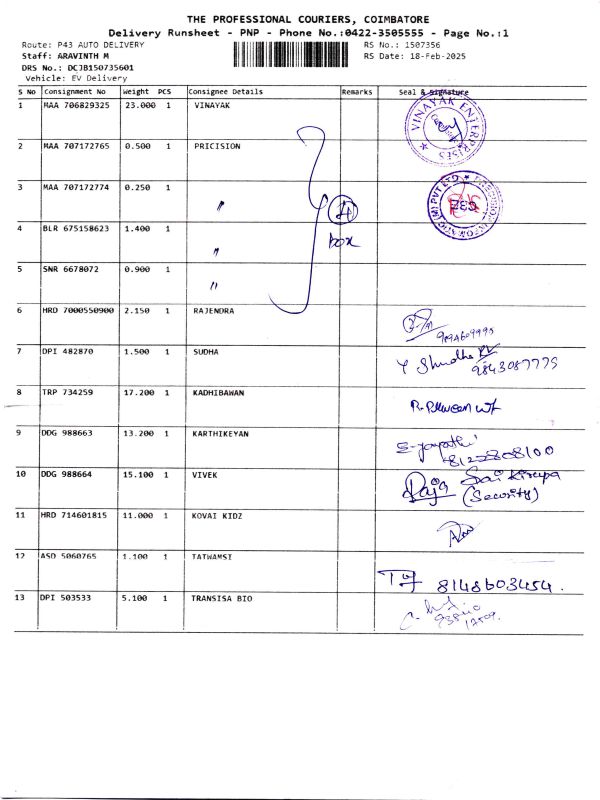 THE PROFESSIONAL COURIERS, COIMBATORE
Delivery Runsheet - PNP - Phone No.:0422-3505555 - Page No.:1
Route: P43 AUTO DELIVERY RS No.: 1507356
Staff: ARAVINTH M RS Date: 18-Feb-2025
DRS No.: DCJB150735601
Vehicle: EV Delivery
S No Consignment No Weight PCS Consignee Details Remarks Seal & Signature
1 MAA 706829325 23.000 1 VINAYAK
VINAYAK ENTERPRISES
2 MAA 707172765 0.500 1 PRICISION
3 MAA 707172774 0.250 1 〃
4 box
4 BLR 675158623 1.400 1 〃
5 SNR 6678072 0.900 1 〃
6 HRD 7000550900 2.150 1 RAJENDRA
7 DPI 482870 1.500 1 SUDHA
9843087775
8 TRP 734259 17.200 1 KADHIBAWAN
9 DDG 988663 13.200 1 KARTHIKEYAN
8122808100
10 DDG 988664 15.100 1 VIVEK
Raja Sai Kirupa
(Security)
11 HRD 714601815 11.000 1 KOVAI KIDZ
12 ASD 5060765 1.100 1 TATWAMSI
8148603454.
13 DPI 503533 5.100 1 TRANSISA BIO